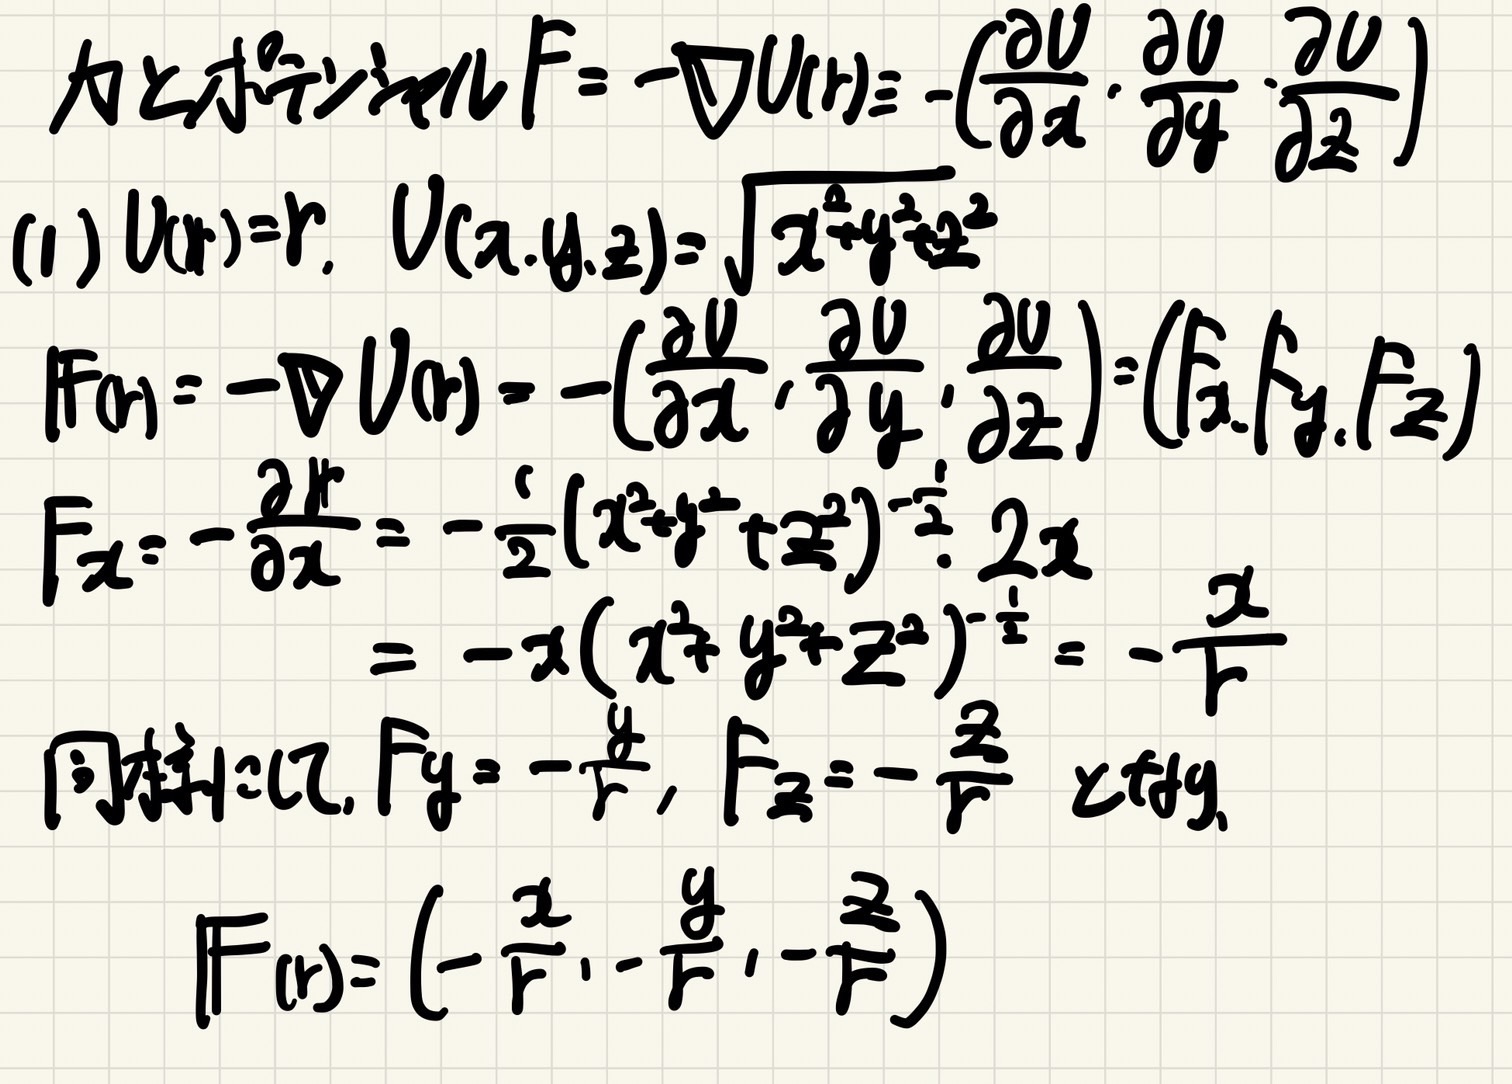 力とポテンシャル F = -∇U(r) ≡ -(∂U/∂x, ∂U/∂y, ∂U/∂z)
(1) U(r)=r, U(x,y,z)=√(x²+y²+z²)
F(r) = -∇U(r) = -(∂U/∂x, ∂U/∂y, ∂U/∂z) = (Fx, Fy, Fz)
Fx = -∂r/∂x = -1/2(x²+y²+z²)^(-1/2)・2x
= -x(x²+y²+z²)^(-1/2) = -x/r
同様にして、Fy = -y/r, Fz = -z/r となり、
F(r) = (-x/r, -y/r, -z/r)